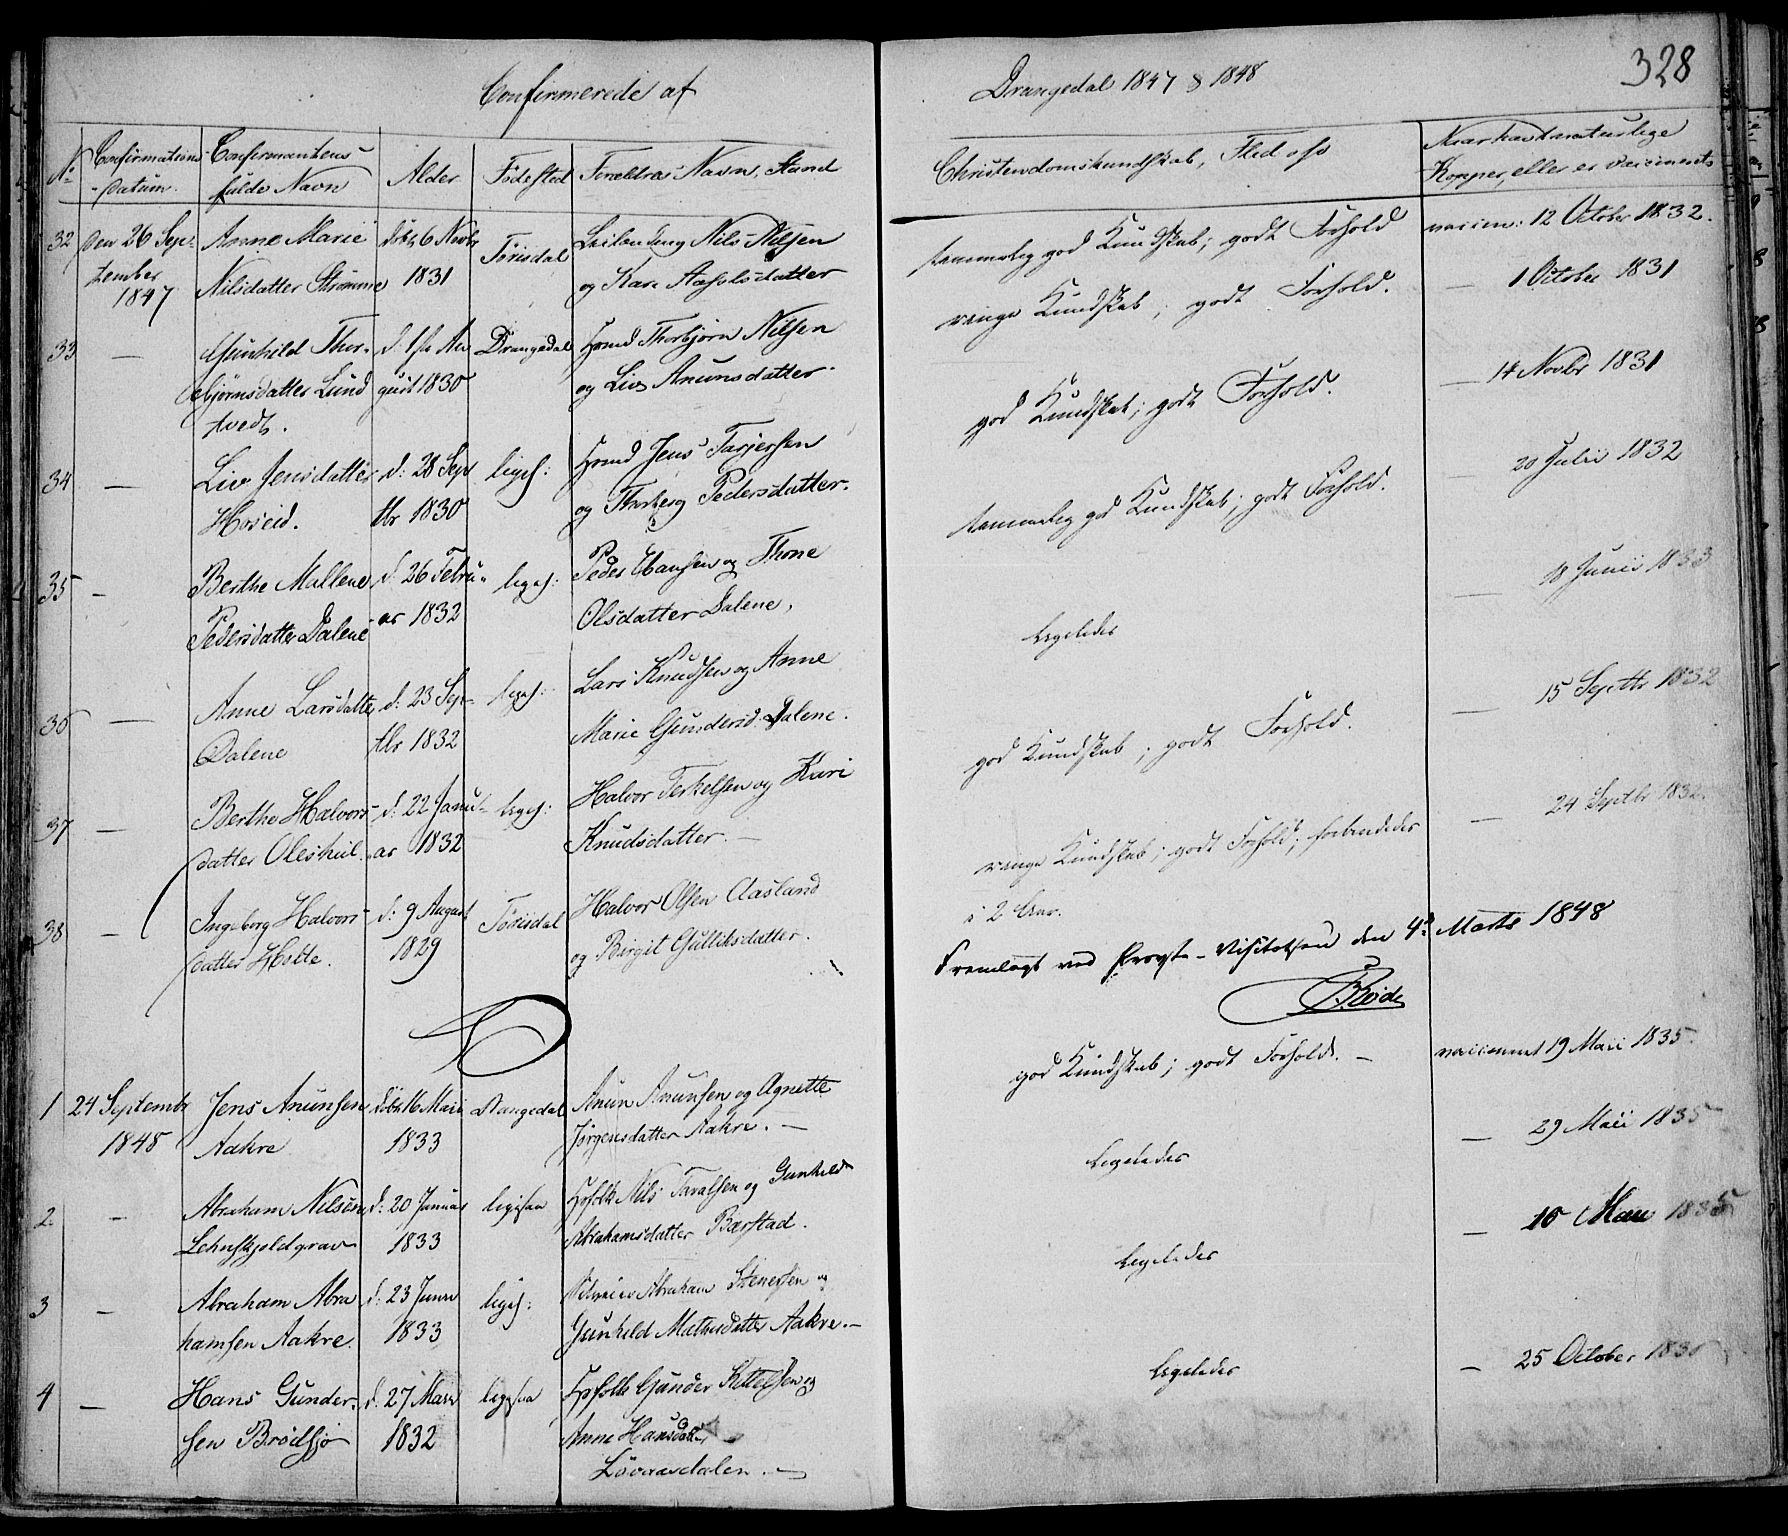 Confirmerede af
Drangedal 1847 & 1848
328
No
Confirmations-
datum.
Confirmantens
fulde Navn
Alder
Fødested
Forældres Navn, Stand
Christendomskundskab, Flid
Naar havt naturlige
Kopper, eller er vaccineret
32 den 26 Sep-
tember
1847
Anne Marie
Nilsdatter Strømme
6 Novbr
1831
Tørisdal
Nils Nilsen
og Kari
temmelig god Kundskab; godt Forhold
12 October 1832.
33 —
Gunhild Thor-
bjørnsdatter Lund
tvedt.
d: 1ste Au
gust 1830
Drangedal
Hmd Thorbjørn Nilsen
og Liv Anunsdatter
ringe Kundskab; godt Forhold.
— 1 October 1831
34 —
Liv Jensdatter
Hoseid.
d: 28 Sept
tbr 1830
liges:
Hmd Jens Tarjersen
og Thorberg Pedersdatter.
god Kundskab; godt Forhold.
— 14 Novbr 1831
35 —
Berthe Mallene
Pedersdatter Dalene
d: 26 Febru-
ar 1832
liges:
Peder Hansen og Thone
Olsdatter Dalene,
temmelig god Kundskab; godt Forhold.
— 20 Julii 1832
36 —
Anne Larsdatter
Dalene
d: 23 Sep-
tbr 1832
liges:
Lars Knudsen og Anne
Marie Gundersd. Dalene.
Ligeledes
— 18 Junii 1833
37 —
Berthe Halvors-
datter Oleskul.
d: 22 Janu-
ar 1832
liges:
Halvor Terkelsen og Kari
Knudsdatter. —
god Kundskab; godt Forhold.
— 15 Septbr 1832
38 —
Ingeborg Halvors-
datter Holte.
d: 9 August
1829
Tørisdal
Halvor Olsen Aasland
og Birgit Gulliksdatter.
ringe Kundskab; godt Forhold; forberedes
i 2 Aar.
— 24 Septbr 1832
Fremlagt ved Provste-Visitatsen den 4de Marts 1848
1 24 Septembr
1848
Jens Anunsen
Aakre
16 Maii
1833
Drangedal
Anun Anunsen og Agnette
Jørgensdatter Aakre. —
god Kundskab; godt Forhold. —
vaccineret 19 Maii 1835
2 —
Abraham Nilsen
d: 20 Januar
1833
ligesaa
Nils Taralsen og Gunhild
Abrahamsdatter Barstad.
Ligeledes
— 29 Maii 1835
3 —
Abraham Abra
hamsen Aakre.
d: 23 Juni
1833
liges:
Abraham Stenersen og
Gunhild Mathisdatter Aakre. —
Ligeledes
4 —
Hans Gunder-
sen Brødsjø
d: 27 Mars
1832
ligesaa
Gunder Kettelsen og
Anne Hansdatter
Løvaasdalen. —
Ligeledes
— 25 October